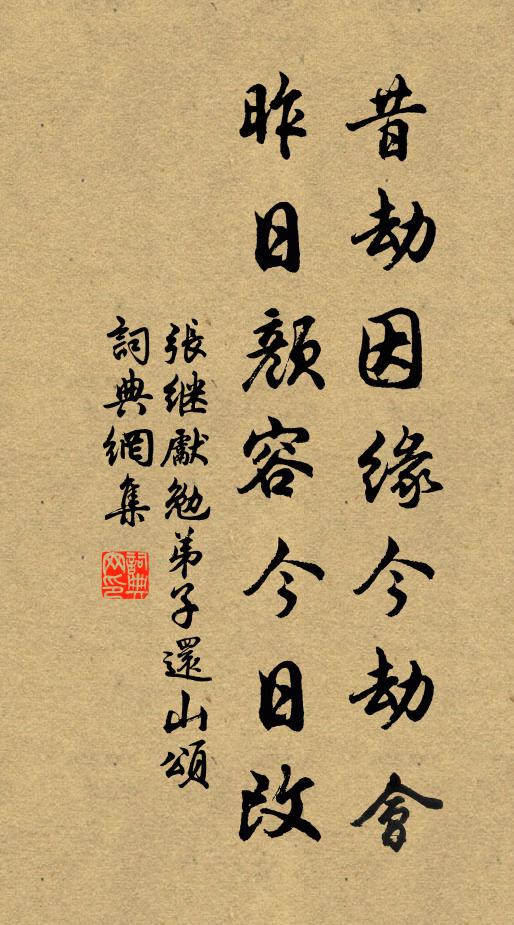 昔劫因緣今劫會
昨日顏容今日改
張继獻勉弟子還山頌
詞典網集
詞典網印